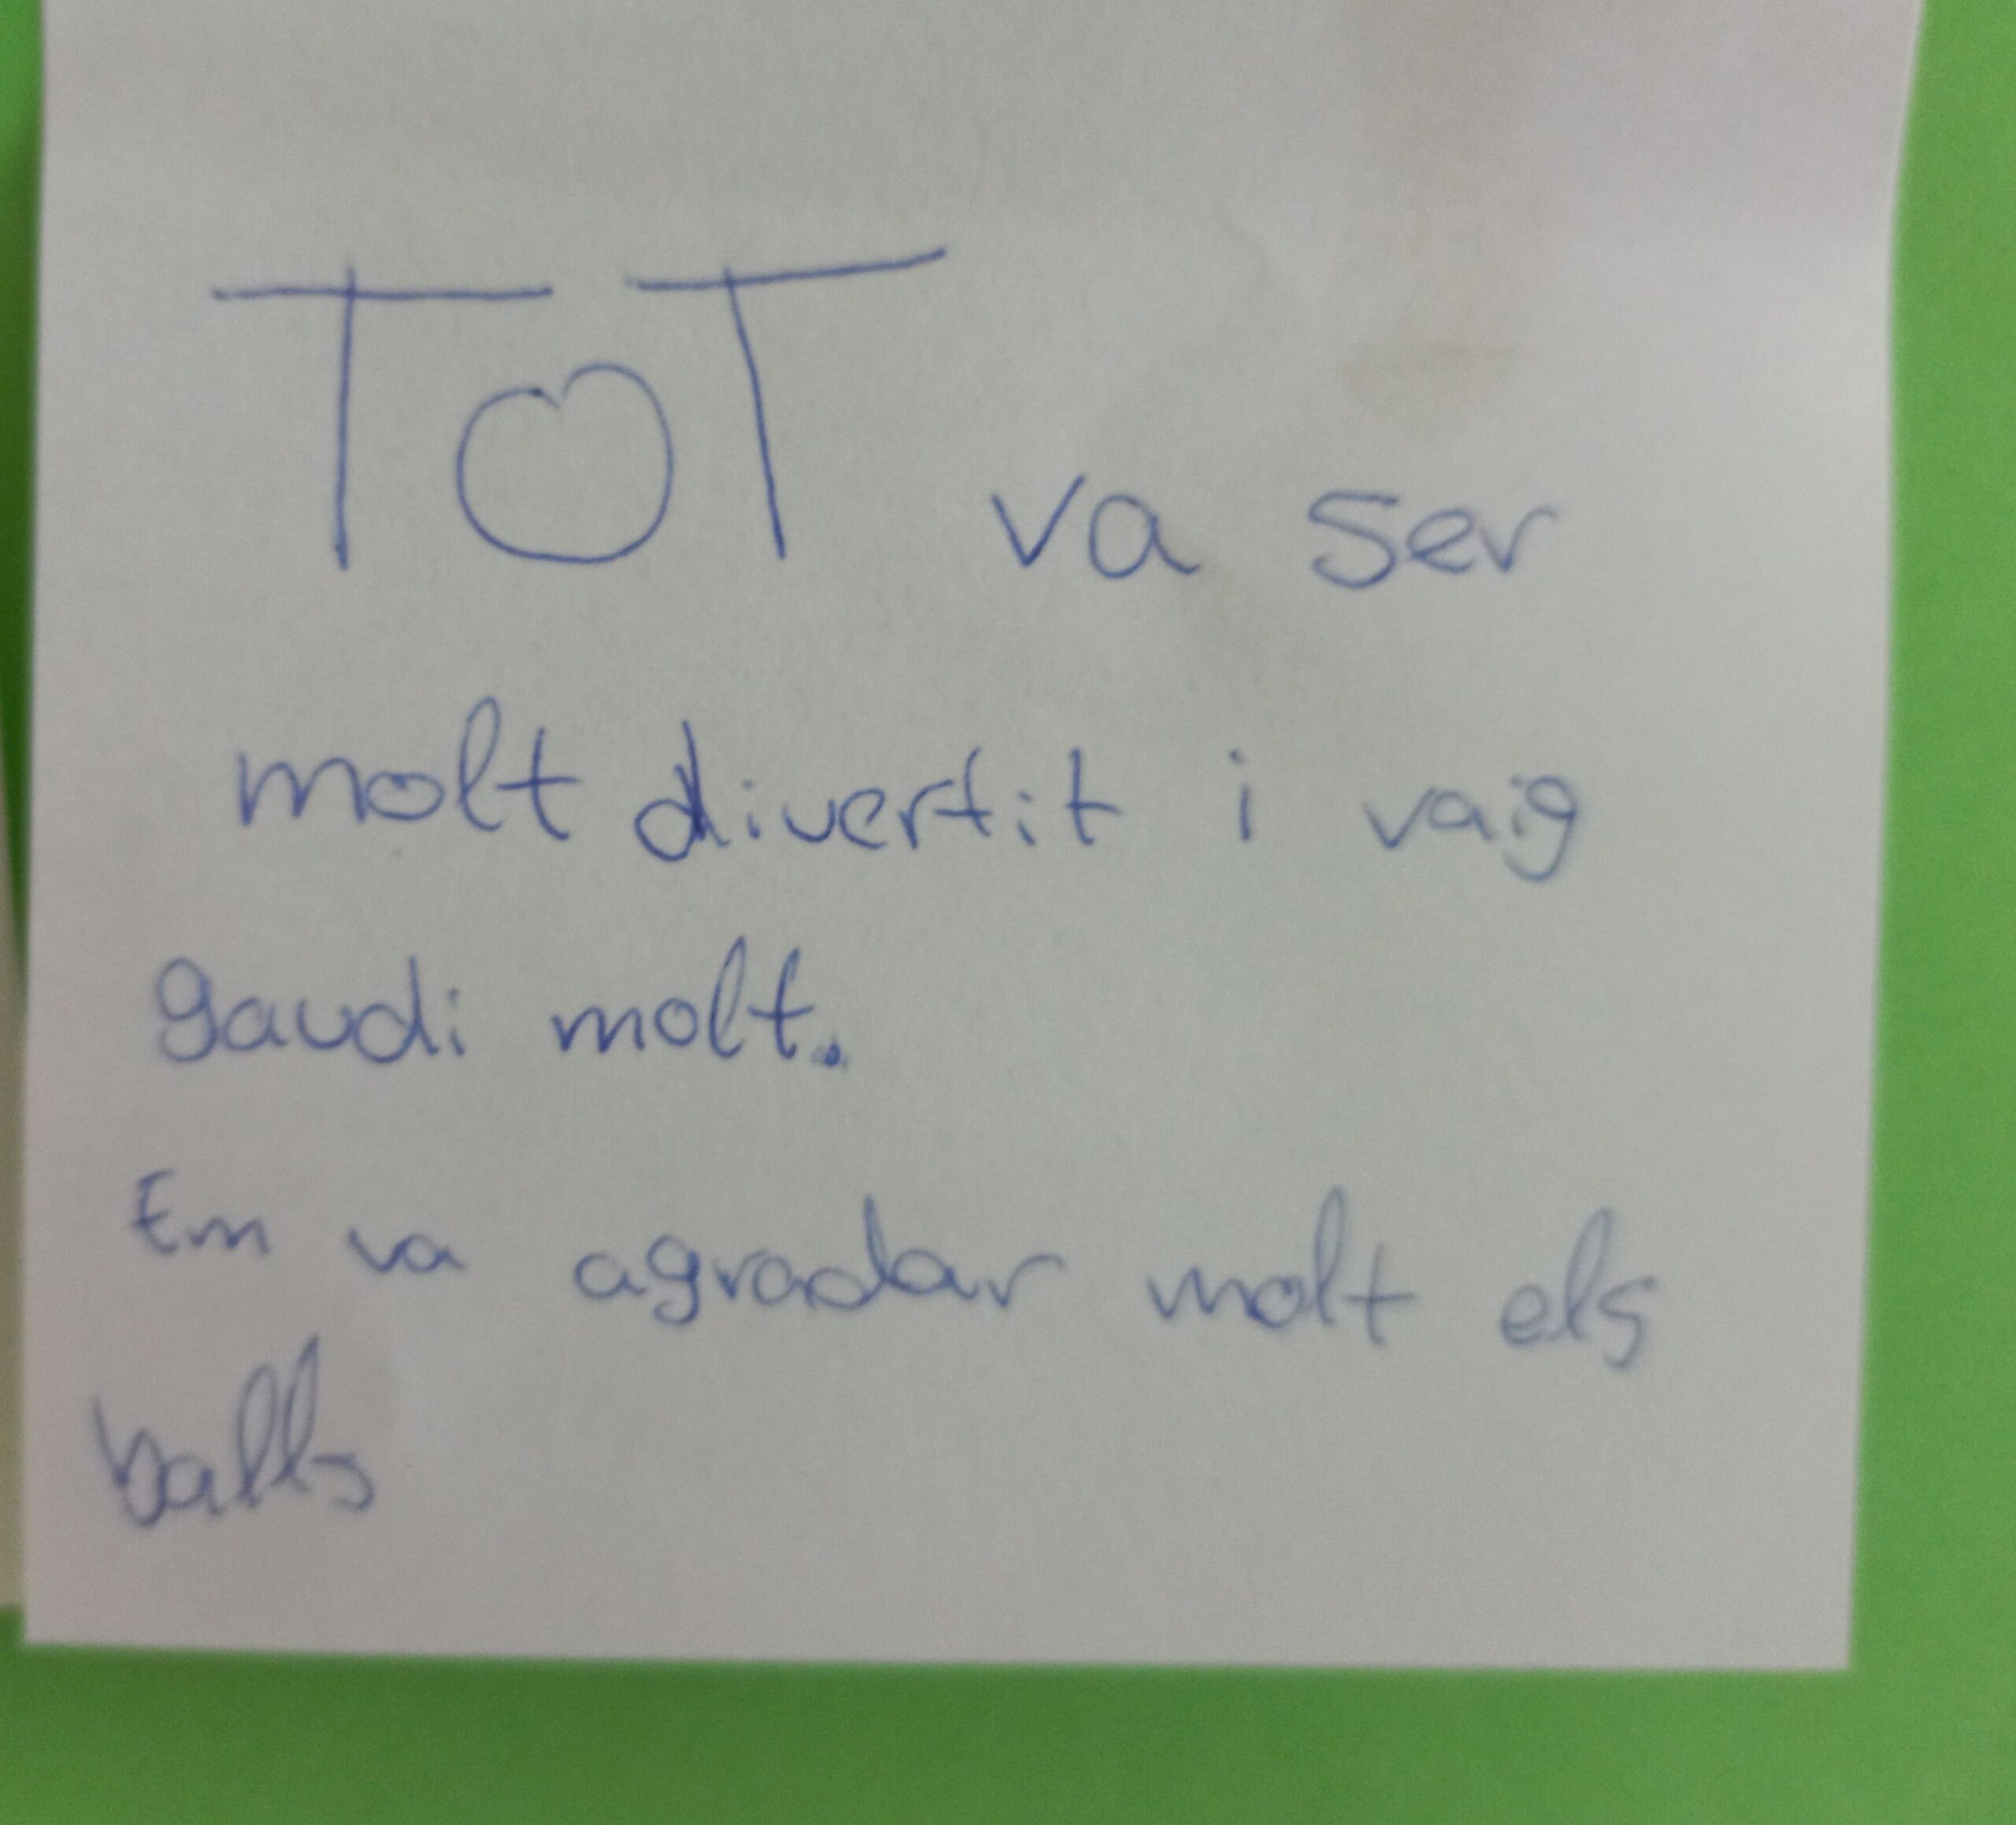 TOT va ser
molt divertit i vaig
gaudi molt.
Em va agradar molt els
balls